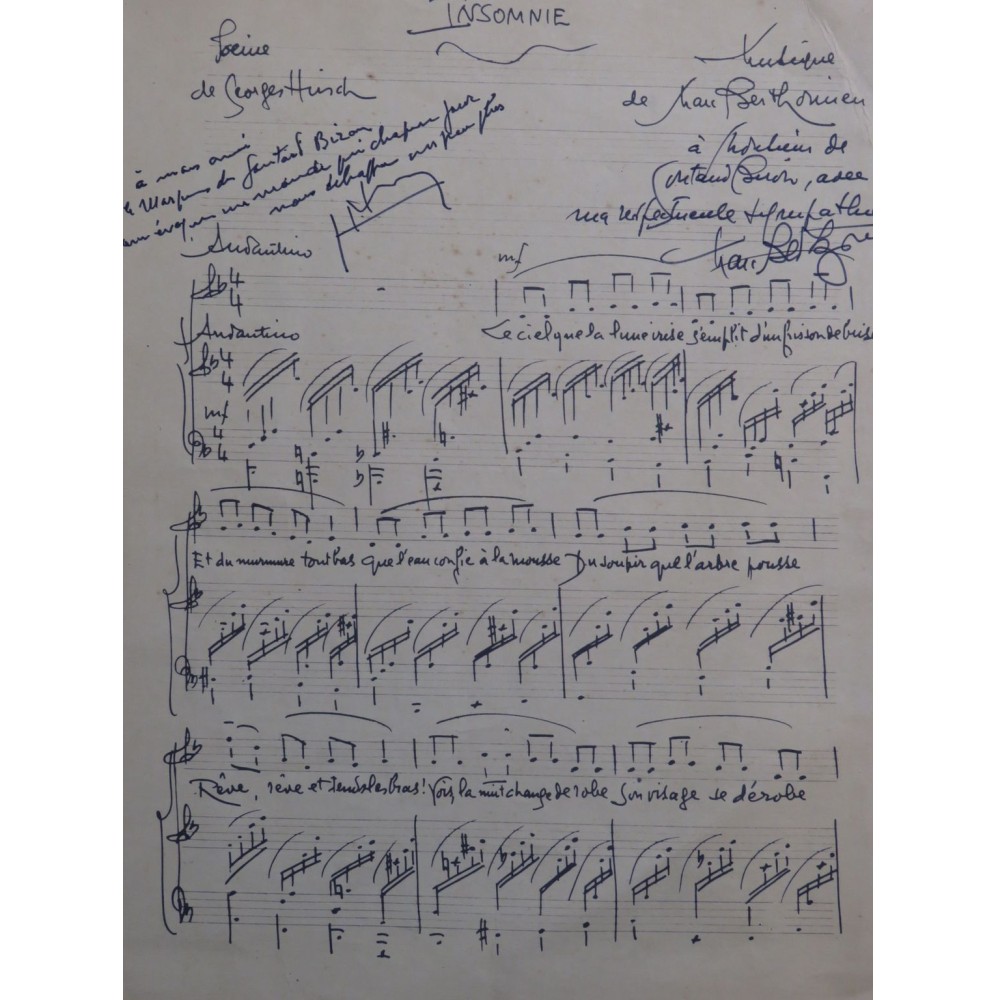 INSOMNIE
Poème
de Georges Hirsch
Musique
de Marc Berthomieu
à mon ami
le Marquis de Gontaut Biron
un monde qui chaque jour
nous un peu plus
à Monsieur de
Gontaut Biron, avec
ma respectueuse sympathie
Marc Berthomieu
Andantino
mf
Le ciel que la lune irise s'emplit d'un frisson de brise
Andantino
mf
Et du murmure tout bas que l'eau confie à la mousse Du soupir que l'arbre pousse
Rêve, rêve et tends les bras! Vois, la nuit change de robe Son visage se dérobe